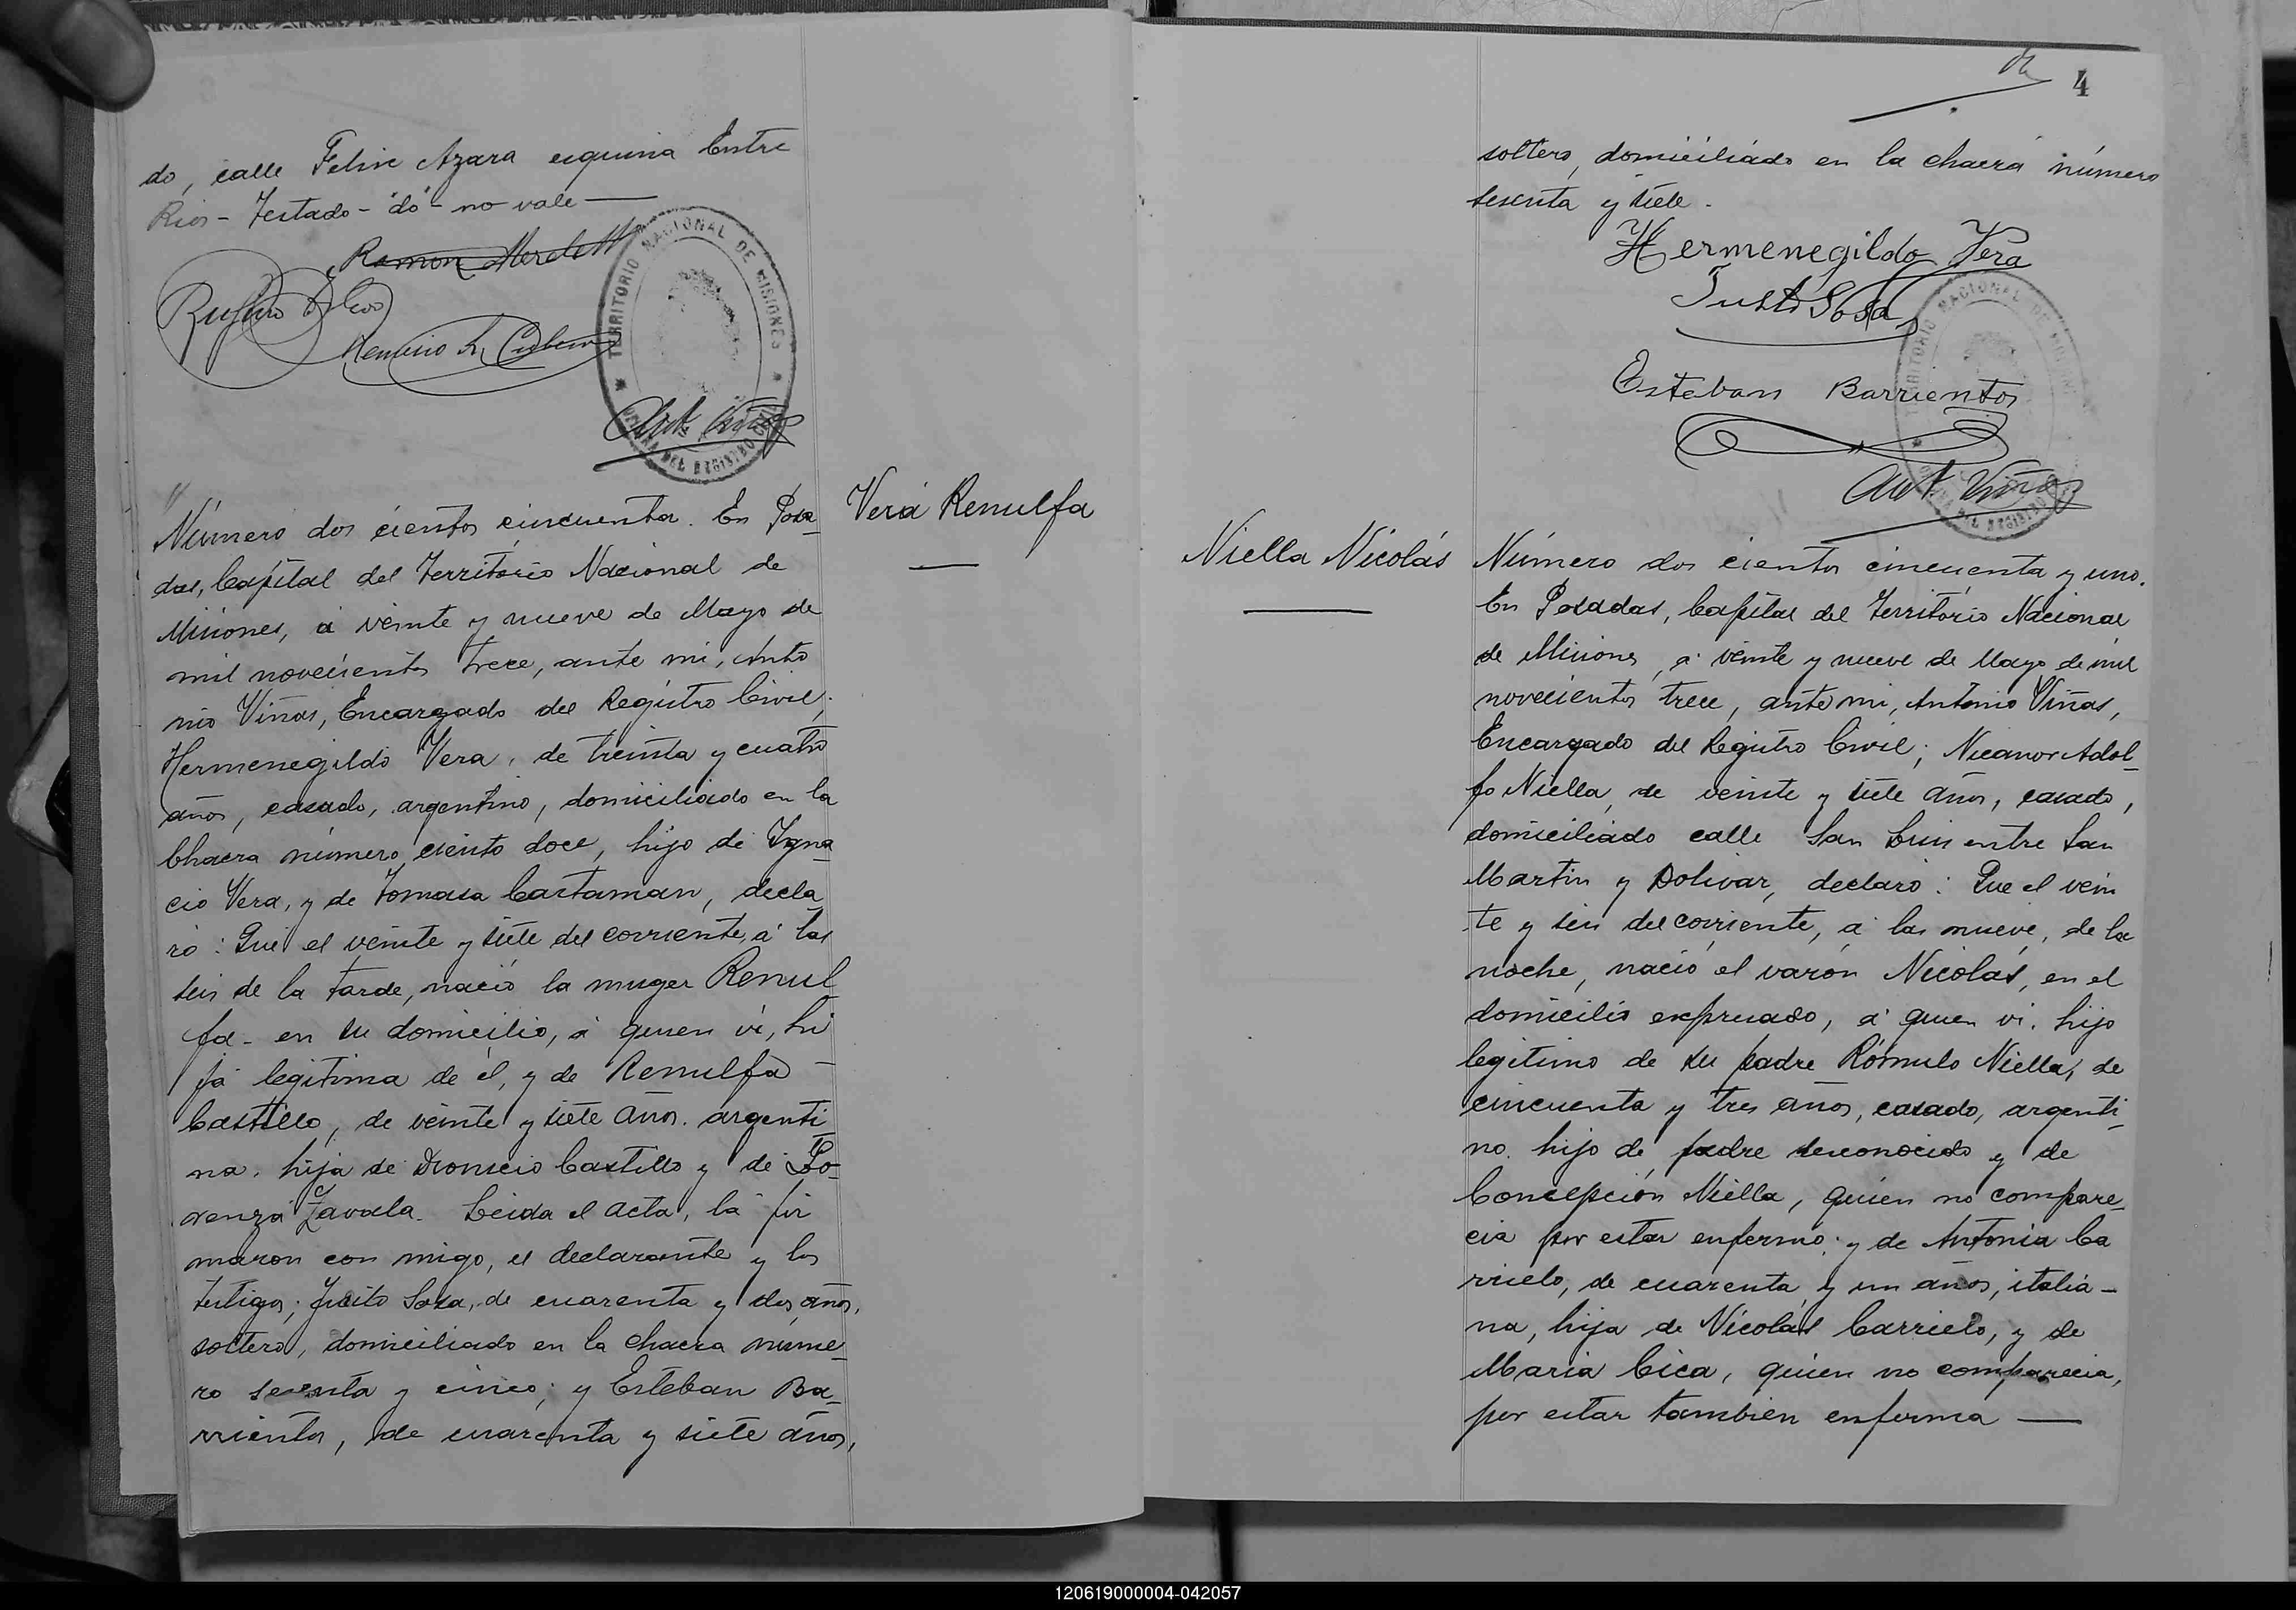 do, calle Felix Azara esquina Entre
Rios - Testado - "do" - no vale
TERRITORIO NACIONAL DE MISIONES
DEL REGISTRO CIVIL
Ant. Viñas
Vera Renulfa
Número dos cientos cincuenta. En Posa
das, Capital del Territorio Nacional de
Misiones, á veinte y nueve de Mayo de
mil novecientos trece, ante mi, Anto
nio Viñas, Encargado del Registro Civil;
Hermenegildo Vera, de treinta y cuatro
años, casado, argentino, domiciliado en la
Chacra número ciento doce, hijo de Igna
cio Vera, y de Tomasa Cartaman, decla
ró: Que el veinte y siete del corriente, á las
seis de la tarde, nació la muger Renul
fa - en su domicilio, á quien vi, hi
ja legitima de él, y de Renulfa
Castillo, de veinte y siete años. argenti
na. hija de Dionicio Castillo y de Lo-
renza Zavala. Leida el acta, la fir
maron con migo, el declarante y los
testigos; Justo Sosa, de cuarenta y dos años,
soltero, domiciliado en la chacra núme
ro sesenta y cinco; y Esteban Ba
rrientos, de cuarenta y siete años,
4
soltero, domiciliado en la chacra número
sesenta y siete.
Hermenegildo Vera
Justo Sosa
Esteban Barrientos
TERRITORIO NACIONAL DE
DEL REGISTRO
Ant. Viñas
Niella Nicolás
Número dos cientos cincuenta y uno.
En Posadas, Capital del Territorio Nacional
de Misiones, á veinte y nueve de Mayo de mil
novecientos trece, ante mi, Antonio Viñas,
Encargado del Registro Civil; Nicanor Adol
fo Niella, de veinte y siete años, casado,
domiciliado calle San Luis entre San
Martin y Bolivar, declaró: Que el vein
te y seis del corriente, á las nueve, de la
noche, nació el varón Nicolás, en el
domicilio expresado, á quien vi. hijo
legitimo de su padre Rómulo Niella, de
cincuenta y tres años, casado, argenti
no. hijo de padre desconocido y de
Concepción Niella, quien no compare
cia por estar enfermo; y de Antonia Ca
rrielo, de cuarenta y un años, italia-
na, hija de Nicolás Carrielo, y de
Maria Cica, quien no comparecia,
por estar tambien enferma
120619000004-042057